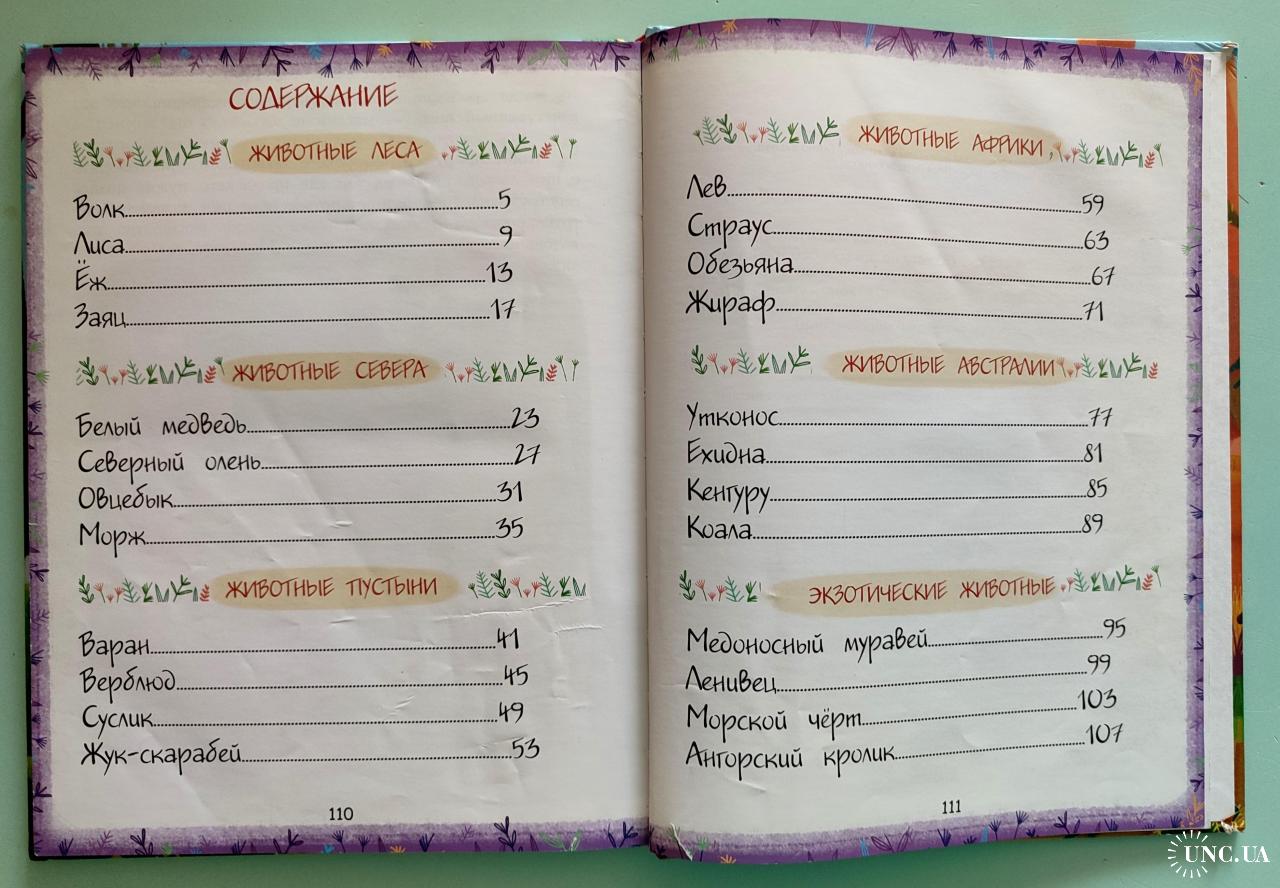 СОДЕРЖАНИЕ
ЖИВОТНЫЕ ЛЕСА
Волк 5
Лиса 9
Ёж 13
Заяц 17
ЖИВОТНЫЕ СЕВЕРА
Белый медведь 23
Северный олень 27
Овцебык 31
Морж 35
ЖИВОТНЫЕ ПУСТЫНИ
Варан 41
Верблюд 45
Суслик 49
Жук-скарабей 53
110
ЖИВОТНЫЕ АФРИКИ
Лев 59
Страус 63
Обезьяна 67
Жираф 71
ЖИВОТНЫЕ АВСТРАЛИИ
Утконос 77
Ехидна 81
Кенгуру 85
Коала 89
ЭКЗОТИЧЕСКИЕ ЖИВОТНЫЕ
Медоносный муравей 95
Ленивец 99
Морской чёрт 103
Ангорский кролик 107
111
UNC.UA